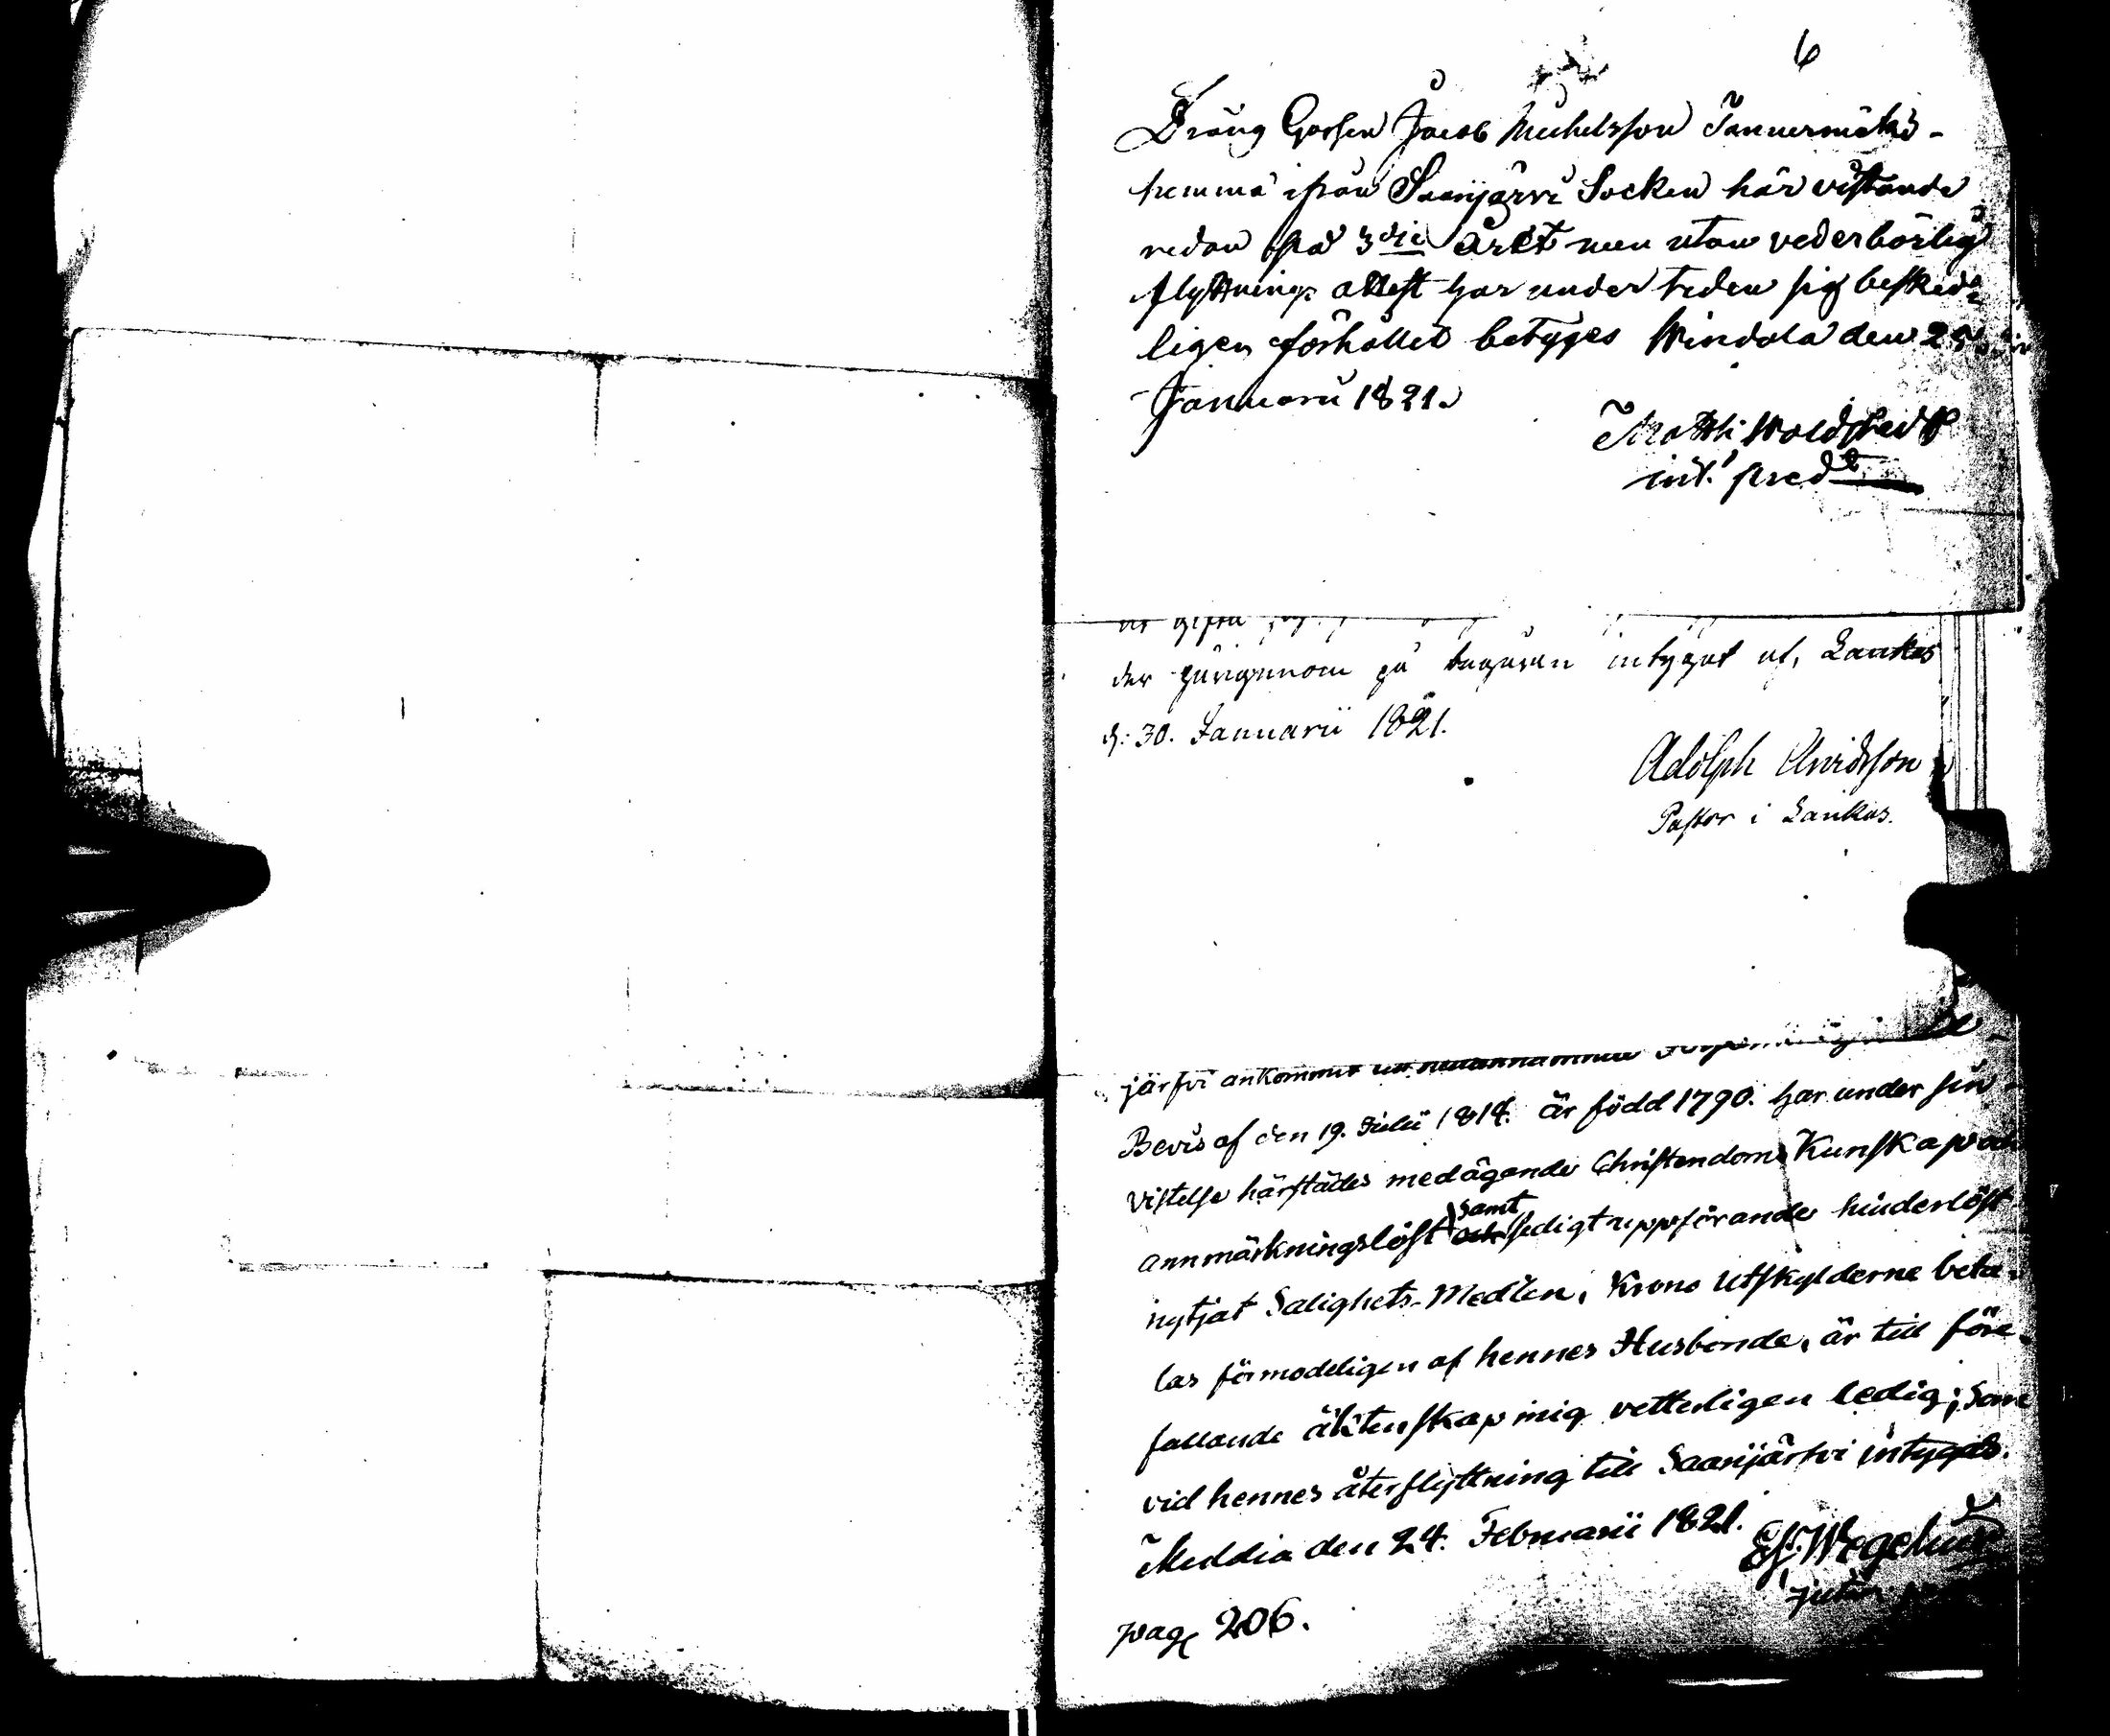 6
Dräng Gossen Jacob Michelsson Tannermäki
hemma ifrån Saarijärvi Socken här vistande
redan på 3die året men utan vederbörlig
flyttnings attest har under tiden sig beskede
ligen förhållit betyges Windala den
Januarii 1821.
Matth: Woldstedt
int. pred
der härigenom på begäran intygat af, Laukas
d: 30. Januarii 1821.
Adolph Arvidsson
Pastor i Laukas.
järfvi ankommit
Bevis af den 19. Julii 1818. är född 1790. har under sin
vistelse härstädes medägande Christendoms Kunskap och
annmärkningslöst samt sedigt uppförande hinderlöst
nytjat Salighets-Medlen, Krono Utskylderne beta-
las förmodeligen af hennes Husbonde, är till före-
fallande äktenskap mig vetterligen ledig; Som
vid hennes återflyttning till Saarijärfvi intygas.
den 24. Februarii 1821.
Wegelius
pag 206.